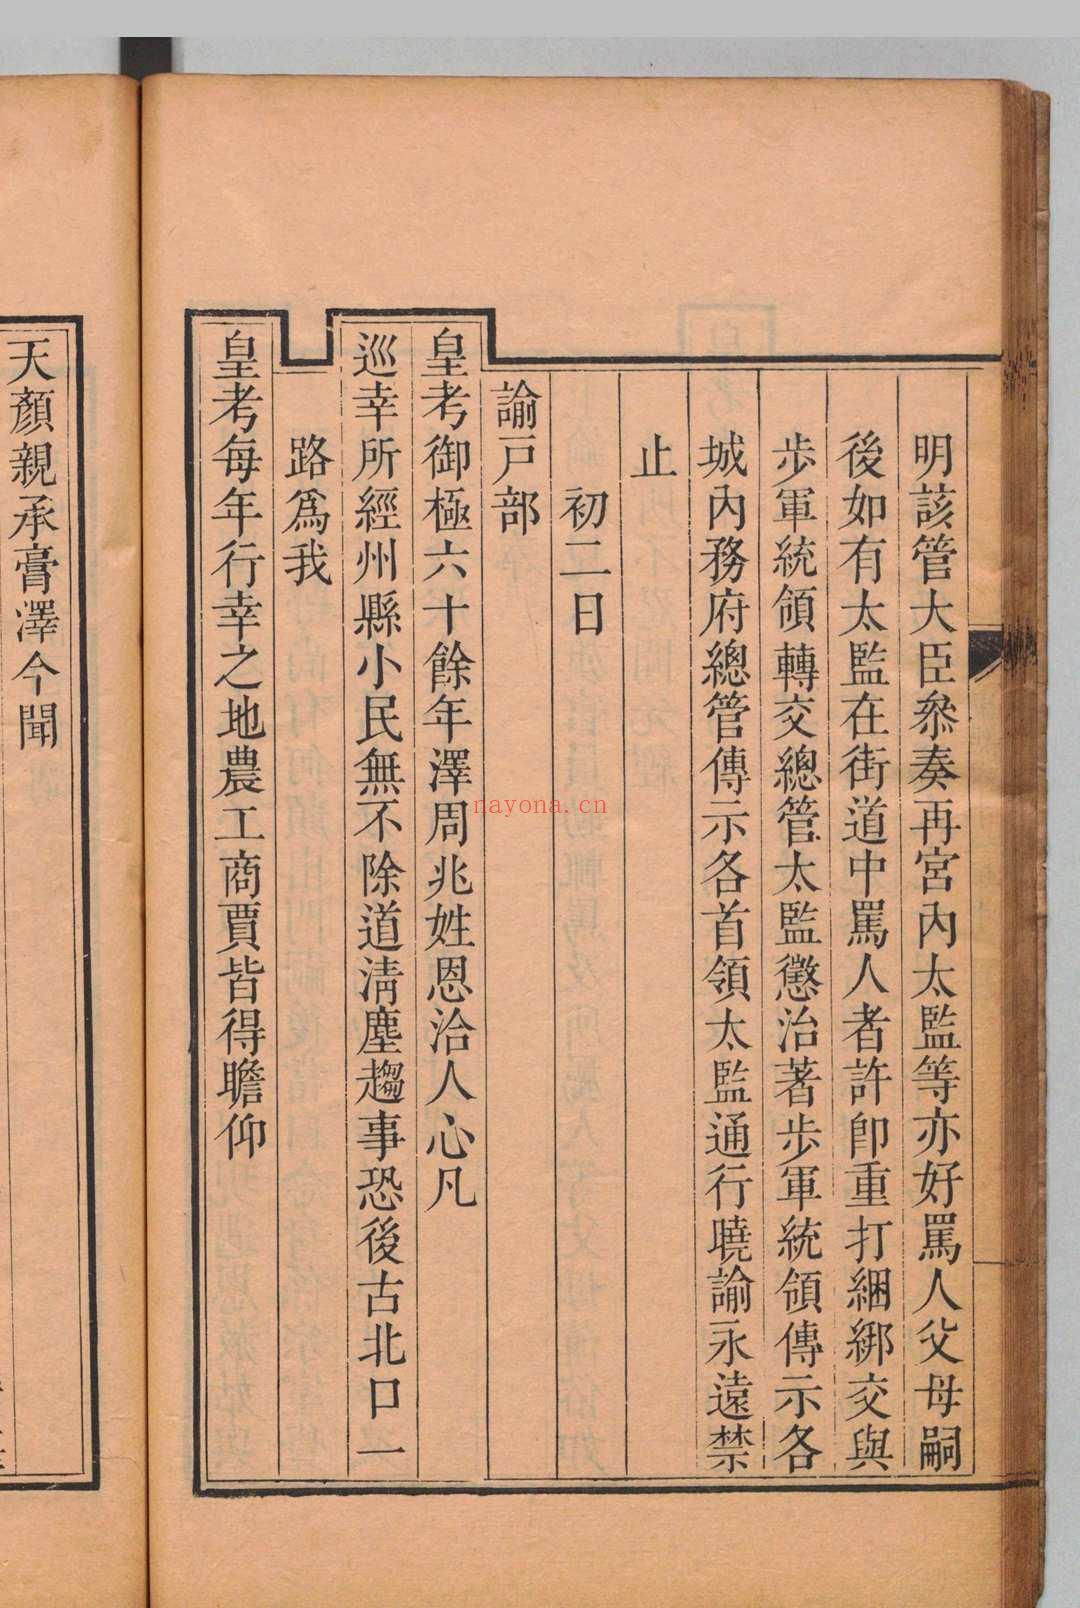 明該管大臣叅奏再宮內太監等亦好罵人父母嗣
後如有太監在街道中罵人者許卽重打綑綁交與
步軍統領轉交總管太監懲治著步軍統領傳示各
城內務府總管傳示各首領太監通行曉諭永遠禁
止
初二日
諭戸部
皇考御極六十餘年澤周兆姓恩洽人心凡
巡幸所經州縣小民無不除道清塵趨事恐後古北口一
路爲我
皇考每年行幸之地農工商賈皆得瞻仰
天顏親承膏澤今聞
nayona.cn